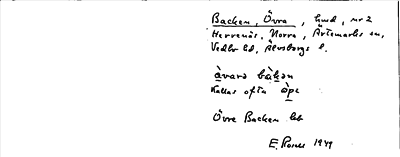 Backen, Övra, hmd, nr 2
Herrenäs, Norra, Ärtemarks sn,
Vedbo hd, Älvsborgs l.
àvarə bàkən
Kallas ofta òpe
Övre Backen
E. 1949